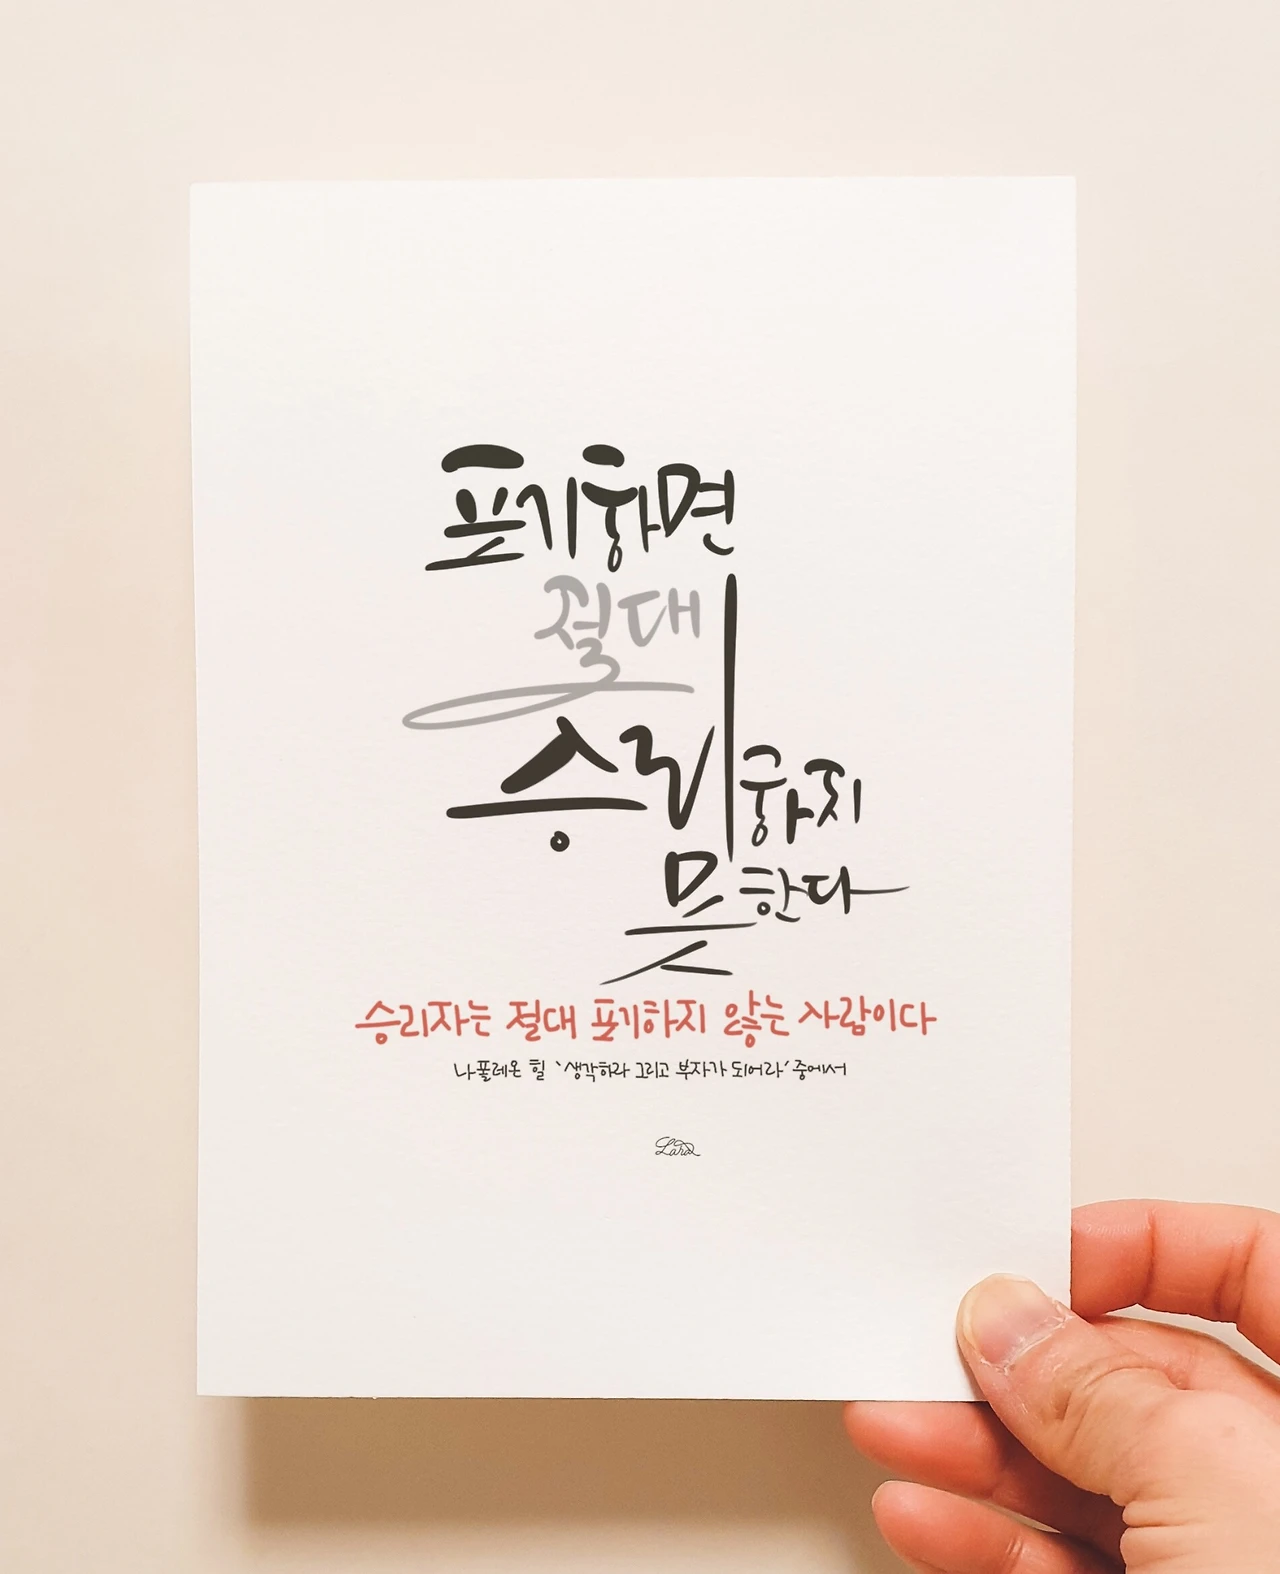 포기하면
절대
승리하지
못한다
승리자는 절대 포기하지 않는 사람이다
나폴레온 힐 '생각하라 그리고 부자가 되어라' 중에서
Lara